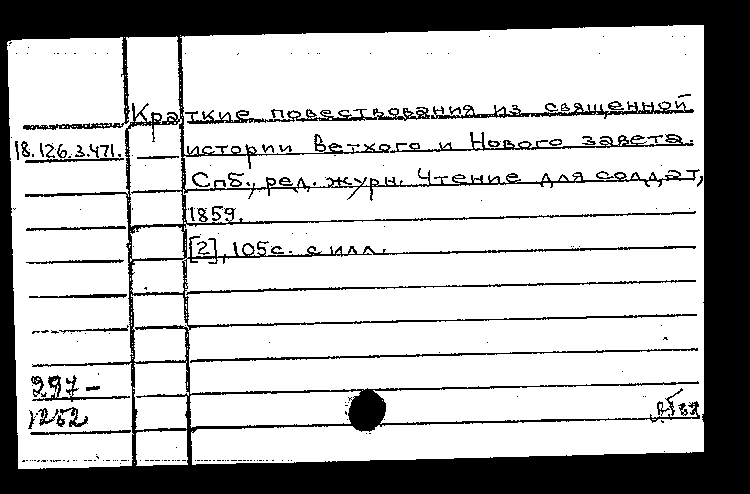 Краткие повествования из священной
18.126.3.471. истории Ветхого и Нового завета.
Спб., ред. журн. Чтение для солдат,
1859.
[2], 105с. с илл.
297-
1252